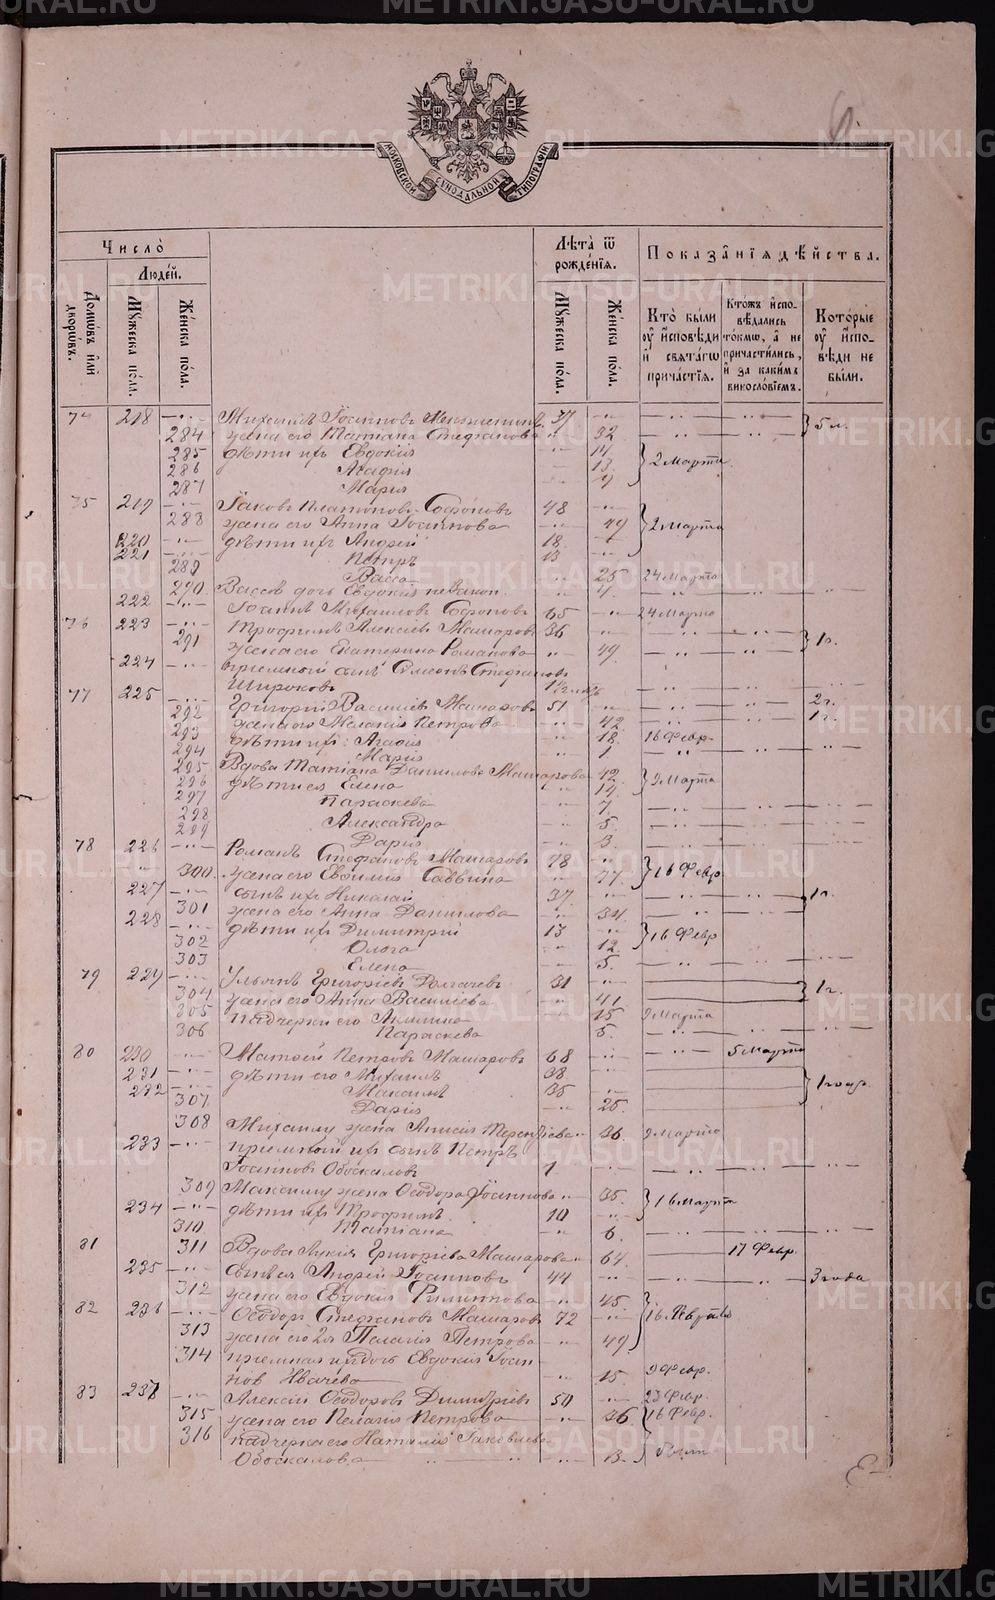 МОСКОВСКОЙ СѴНОДАЛЬНОЙ ТИПОГРАФІИ
Число̀
Людей.
Домѡвъ или дворѡвъ.
Мꙋжеска пола.
Женска пола.
Лѣта ѿ рожденїѧ.
Мꙋжеска пола.
Женска пола.
Показанїѧ дѣйства.
Кто были оу исповѣди и свѧтагѡ причастїѧ.
Ктожъ исповѣдались токмѡ, а не причастились, и за какимъ винословїемъ.
Которые оу исповѣди не были.
74 218 Михаилъ Іоанновъ 37
284 жена его Татіана Стефанова 32 5 л.
285 дѣти ихъ Евдокія 14
286 Агафія 13 2 Марта
287 Марія 9
75 219 Іаковъ Платоновъ Софоновъ 48
288 жена его Анна Іоаннова 49 2 Марта
220 дѣти ихъ Андрей 18
221 Петръ 13
289 Васса 25 24 Марта
290 Вассы дочь Евдокія незакон. 4
222 Іоаннъ Михаиловъ Софоновъ 65 24 Марта
76 223 Трофимъ Алексѣевъ Машаровъ 36
291 жена его Екатерина Романова 49 1 г.
224 пріемной сынъ Симеонъ Стефановъ
Широковъ
77 225 Григорій Василіевъ Машаровъ 51 2 г.
292 жена его Меланія Петрова 42 1 г.
293 дѣти ихъ: Агафія 18 16 Февр.
294 Марія 1
295 Вдова Татіана Данилова Машарова 42
296 дѣти ея Елена 14 9 Марта
297 Параскева 7
298 Александра 5
299 Дарія 3
78 226 Романъ Стефановъ Машаровъ 78
300 жена его Евѳимія Саввина 77 16 Февр.
227 сынъ ихъ Николай 37 1 г.
301 жена его Анна Данилова 34
228 дѣти ихъ Димитрій 13
302 Ольга 12 16 Февр
303 Елена 5
79 229 Ульянъ Григоріевъ 31
304 жена его Анна Василіева 41 1 г.
305 падчерки его 15 9 Марта
306 Параскева 5
80 230 Матѳей Петровъ Машаровъ 68 5 Марта
231 дѣти его Михаилъ 38
232 Максимъ 35 1 годъ
307 Дарія 25
308 Михаилу жена Анисія Терентіева 36 9 Марта
233 пріемной ихъ сынъ Петръ
Іоанновъ Обоскаловъ 7
309 Максиму жена Ѳеодора Іоаннова 35
234 дѣти ихъ Трофимъ 10 16 Марта
310 Татіана 6
81 311 Вдова Лукія Григоріева Машарова 64 17 Февр.
235 сынъ ея Андрей Іоанновъ 44 3 года
312 жена его Евдокія Филиппова 45
82 236 Ѳеодоръ Стефановъ Машаровъ 72 16 Февраля
313 жена его 2я Пелагія Петрова 49
314 пріемная ихъ дочь Евдокія Іоан-
нова Ивачева 15 9 Февр.
83 237 Алексій Ѳеодоровъ Димитріевъ 50 23 Февр.
315 жена его Пелагія Петрова 36 16 Февр.
316 падчерка его Наталія Іаковлева
Обоскалова 13